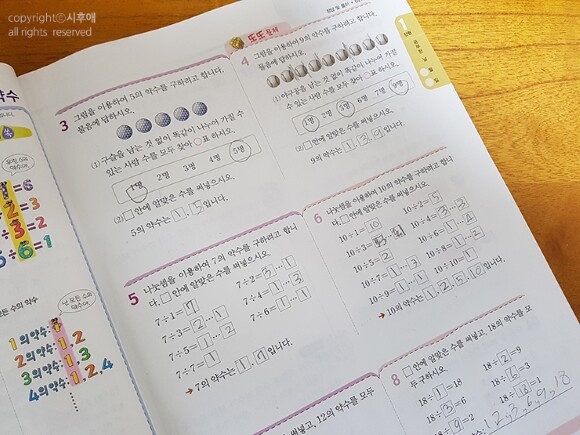 copyrightⓒ시후애
all rights reserved
또또 문제
3 그림을 이용하여 5의 약수를 구하려고 합니다.
물음에 답하시오.
(1) 구슬을 남는 것 없이 똑같이 나누어 가질 수
있는 사람 수를 모두 찾아 ○표 하시오.
1명 2명 3명 4명 5명
(2) □ 안에 알맞은 수를 써넣으시오.
5의 약수는 1, 5입니다.
4 그림을 이용하여 9의 약수를 구하려고 합니다.
물음에 답하시오.
(1) 야구공을 남는 것 없이 똑같이 나누어 가질
수 있는 사람 수를 모두 찾아 ○표 하시오.
(2) □ 안에 알맞은 수를 써넣으시오.
9의 약수는 1, 3, 9입니다.
5 나눗셈을 이용하여 7의 약수를 구하려고 합니
다. □ 안에 알맞은 수를 써넣으시오.
7÷1=7 7÷2=3…1
7÷3=2…1 7÷4=1…3
7÷5=1…2 7÷6=1…1
7÷7=1
➔ 7의 약수는 1, 7입니다.
6 나눗셈을 이용하여 10의 약수를 구하려고 합니
다. □ 안에 알맞은 수를 써넣으시오.
10÷1=10 10÷2=5
10÷4=2
10÷5=2
10÷7=1…3 10÷8=1…2
10÷9=1…1
➔ 10의 약수는 1, 2, 5, 10입니다.
8 □ 안에 알맞은 수를 써넣고, 18의 약수를 모
두 구하시오.
18÷1=18 18÷2=9
18÷3=6 18÷6=3
18÷9=2 18÷18=1
1, 2, 3, 6, 9, 18
써넣고, 12의 약수를 모두
약수
쏙
÷3=2
÷6=1
모든 수의 약수
1의 약수: 1
2의 약수: 1, 2
3의 약수: 1, 3
4의 약수: 1, 2, 4